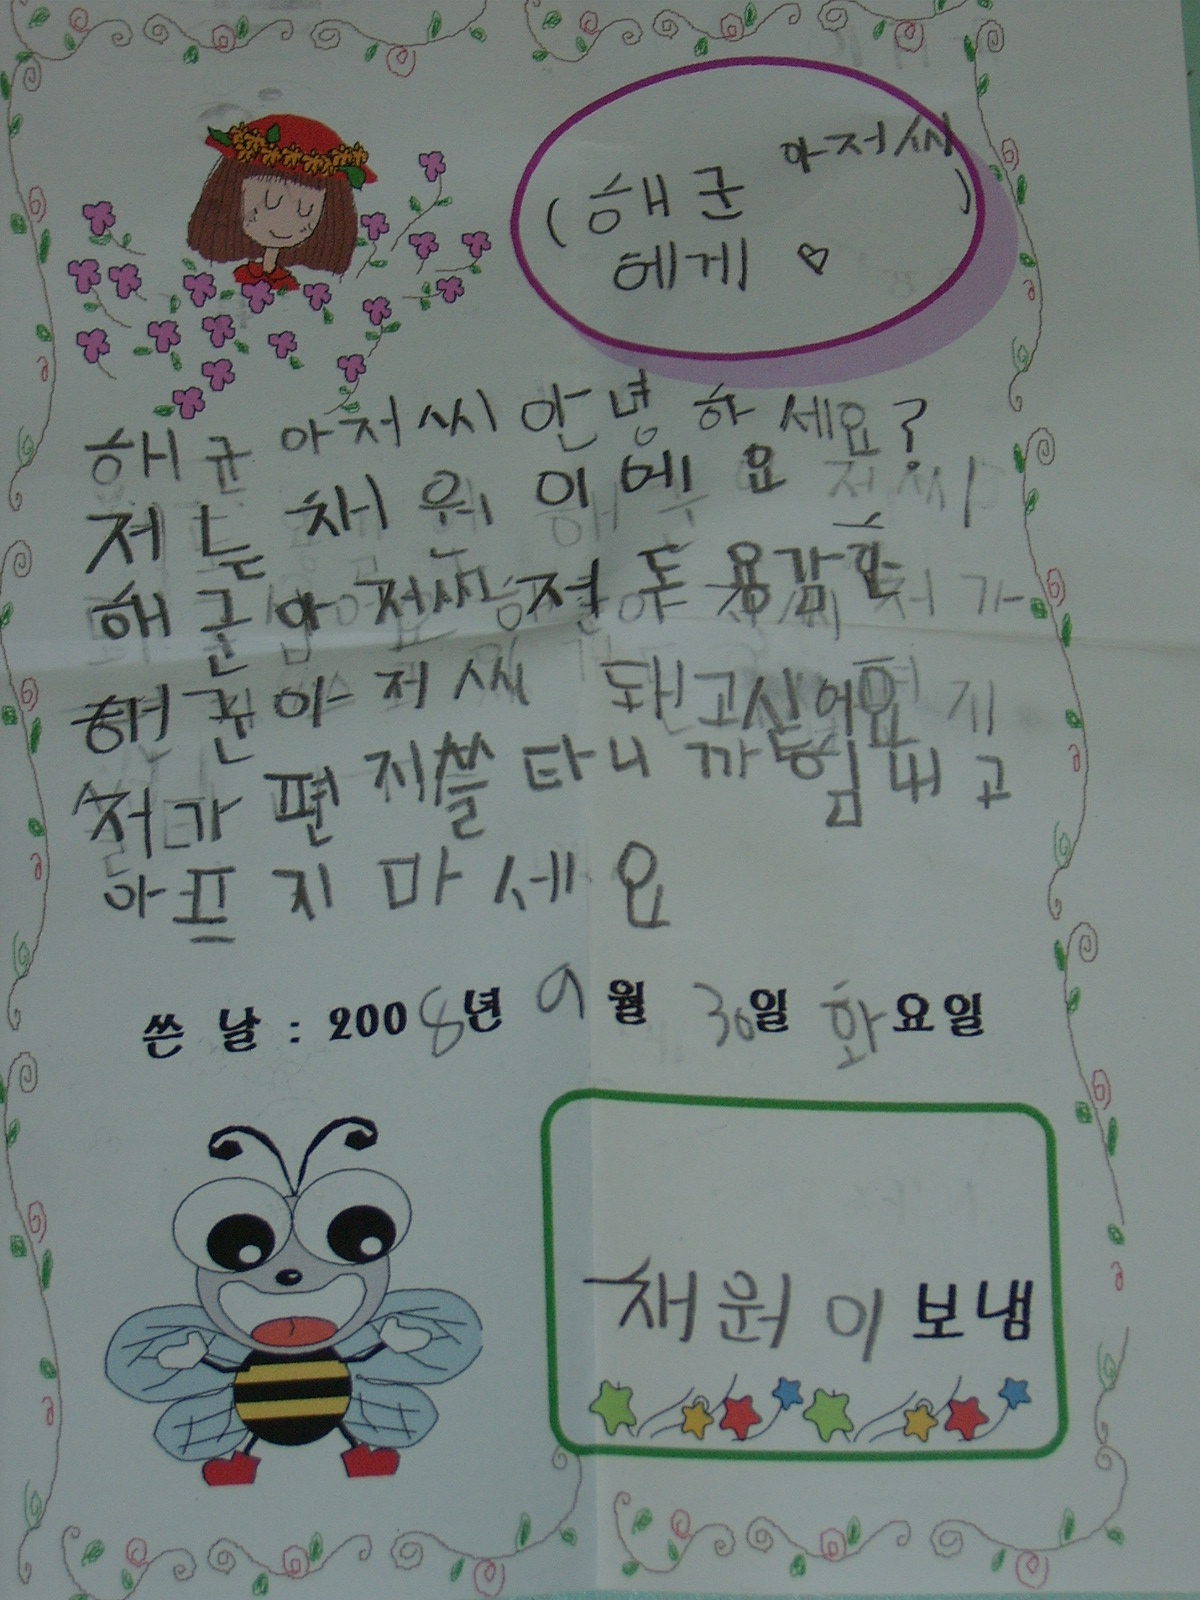 아저씨
(해군 )
에게 ♡
해군 아저씨 안녕 하세요?
저는 채원이에요
해군아저씨 저도 용감한
해군아저씨 돼고싶어요
저가 편지쓸 타니까 힘내고
아프지 마세요
쓴 날 : 2008년 9월 30일 화요일
채원이 보냄